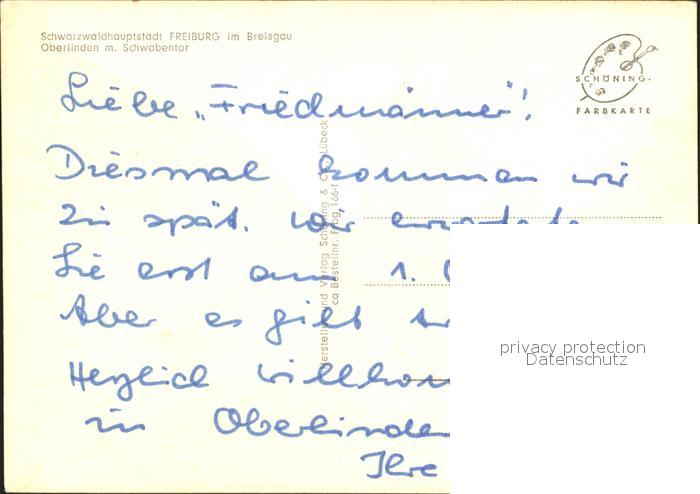 Schwarzwaldhauptstadt FREIBURG im Breisgau
Oberlinden m. Schwabentor
SCHÖNING-
FARBKARTE
Liebe „Friedmänner"!
Diesmal kommen wir
zu spät. Wir
Sie erst am 1.
Aber es gilt
Herzlich
in
Ihre
Hersteller und Verlag Schöning & Co Lübeck
privacy protection
Datenschutz